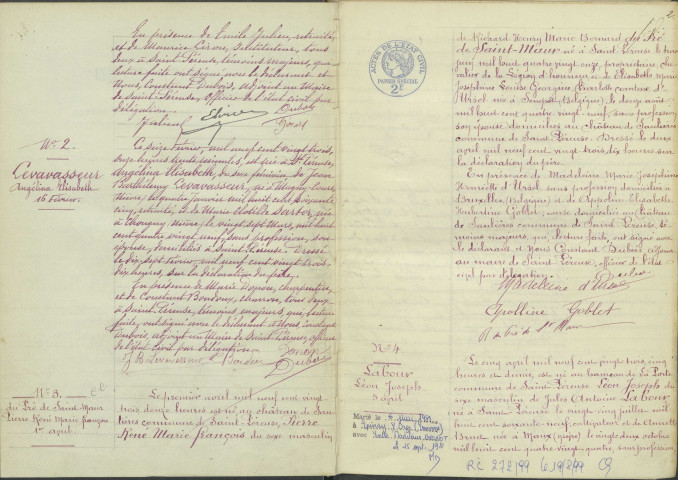 En présence de Emile Julien, retraité,
et de Maurice Cirode, Instituteur, tous
deux à Saint Péreuse, témoins majeurs, qui
lecture faite ont signé avec le déclarant et
Nous, Constant Dubois, adjoint au Maire
de Saint Péreuse, officier de l'état civil par
délégation.
Julien Dubois
N° 2.
Levavasseur
Angélina Elisabeth
16 février.
Le seize février, mil neuf cent vingt trois,
onze heures trente minutes, est née à St Péreuse,
Angélina Elisabeth, du sexe féminin, de Jean
Barthélemy Levavasseur, né à
Nièvre, le quatre janvier mil huit cent soixante
cinq, retraité, et de Marie Clotilde Sartor, née
à Chougny, Nièvre, le vingt sept Mars, mil huit
cent quatre vingt neuf, sans profession, son
épouse, domiciliés à Saint Péreuse. Dressé
le dix sept février, mil neuf cent vingt trois
dix heures, sur la déclaration du père.
En présence de Marie charpentier,
et de Constant Boudoux, charron, tous deux
à Saint Péreuse, témoins majeurs, qui lecture
faite, ont signé avec le déclarant et Nous Constant
Dubois, adjoint au Maire de Saint Péreuse, officier
de l'état civil par délégation.
J B Levavasseur Boudoux Dubois
N° 3.
du Pré de Saint Maur
Pierre René Marie François
1er avril
Le premier avril mil neuf cent vingt
trois deux heures est né au château de Saulières
commune de Saint Péreuse, Pierre
René Marie François du sexe masculin
2
ACTES DE L'ETAT CIVIL
PAPIER SPECIAL
2F
de Richard Henry Marie Bernard du Pré
de Saint-Maur né à Saint Péreuse le trois
juin mil huit cent quatre vingt onze, propriétaire, chevalier
de la Légion d'honneur et de Elisabeth Marie
Joséphine Louise Georgine Charlotte comtesse d'
Ursel née à (Belgique) le deux août
mil huit cent quatre vingt neuf, sans profession
son épouse domiciliés au château de Saulières
commune de Saint Péreuse. Dressé le deux
avril mil neuf cent vingt trois dix heures sur
la déclaration du père.
En présence de Madeleine Marie Joséphine
Henriette d'Ursel sans profession domiciliée à
Bruxelles (Belgique) et de Appoline Elisabeth
Hubertine Goblet, domiciliée au château
de Saulières commune de Saint Péreuse, témoins
majeurs qui, lecture faite, ont signé avec
le déclarant et Nous Constant Dubois adjoint
au maire de Saint Péreuse, officier de l'état
civil par délégation.
Madeleine d'Ursel Dubois
Apolline Goblet
R du Pré de St Maur
N° 4
Labour
Léon Joseph
5 avril
Le cinq avril mil neuf cent vingt trois cinq
heures et demie, est né au hameau de La Porte
commune de Saint Péreuse Léon Joseph du
sexe masculin de Jules Antoine Labour
né à Saint Péreuse le vingt cinq juillet mil
huit cent soixante neuf, cultivateur et de Annette
Brunet née à Maux (Nièvre) le vingt deux octobre
mil huit cent quatre vingt quatre, sans profession
Marié le
à
avec
le 15 sept.
RC 272/99